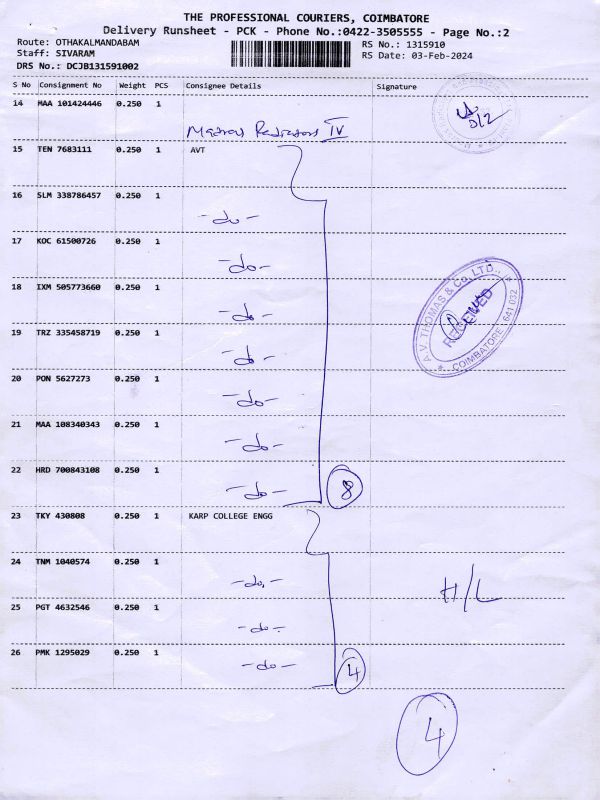 THE PROFESSIONAL COURIERS, COIMBATORE
Delivery Runsheet - PCK - Phone No.:0422-3505555 - Page No.:2
Route: OTHAKALMANDABAM
Staff: SIVARAM
DRS No.: DCJB131591002
RS No.: 1315910
RS Date: 03-Feb-2024
S No Consignment No Weight PCS Consignee Details Signature
14 MAA 101424446 0.250 1
Madras Radiators IV
15 TEN 7683111 0.250 1 AVT
16 SLM 338786457 0.250 1
-do-
17 KOC 61500726 0.250 1
-do-
18 IXM 505773660 0.250 1
-do-
19 TRZ 335458719 0.250 1
-do-
20 PON 5627273 0.250 1
-do-
21 MAA 108340343 0.250 1
-do-
22 HRD 700843108 0.250 1
-do-
8
A.V. THOMAS & Co. LTD.,
RECEIVED
COIMBATORE - 641 032
23 TKY 430808 0.250 1 KARP COLLEGE ENGG
24 TNM 1040574 0.250 1
-do-
25 PGT 4632546 0.250 1
-do-
26 PMK 1295029 0.250 1
-do-
4
H/L
4